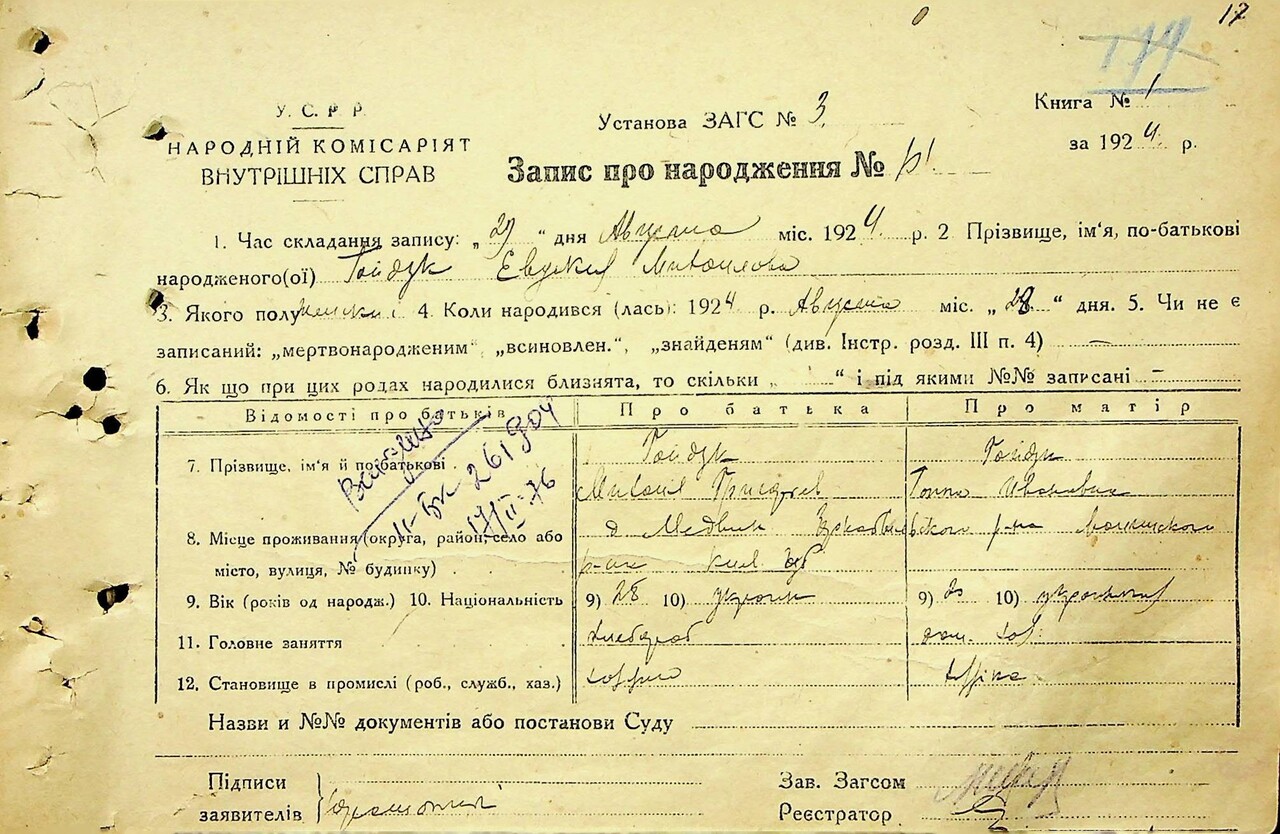 17
У. С. Р. Р.
НАРОДНІЙ КОМІСАРІЯТ
ВНУТРІШНІХ СПРАВ
Установа ЗАГС № 3
Книга № 1
за 1924 р.
Запис про народження №
1. Час складання запису: „29“ дня Августа міс. 1924 р. 2 Прізвище, ім'я, по-батькові
народженого(ої) Гайдук Евдокия Михайлова
3. Якого полу женски 4. Коли народився (лась): 1924 р. Августа міс. „28“ дня. 5. Чи не є
записаний: „мертвонародженим“, „всиновлен.“, „знайденям“ (див. Інстр. розд. III п. 4) —
6. Як що при цих родах народилися близнята, то скільки „ “ і під якими №№ записані –
Відомості про батьків Про батька Про матір
7. Прізвище, ім'я й по-батькові Гайдук Гайдук
Михаил Ивановна
8. Місце проживання (округа, район, село або
місто, вулиця, № будинку)
9. Вік (років од народж.) 10. Національність 9) 28 10) украин 9) 20 10) украинка
11. Головне заняття хлебороб дом. хоз.
12. Становище в промислі (роб., служб., хаз.)
261904
17/II-76
Назви и №№ документів або постанови Суду
Підписи
заявителів
Зав. Загсом
Реєстратор